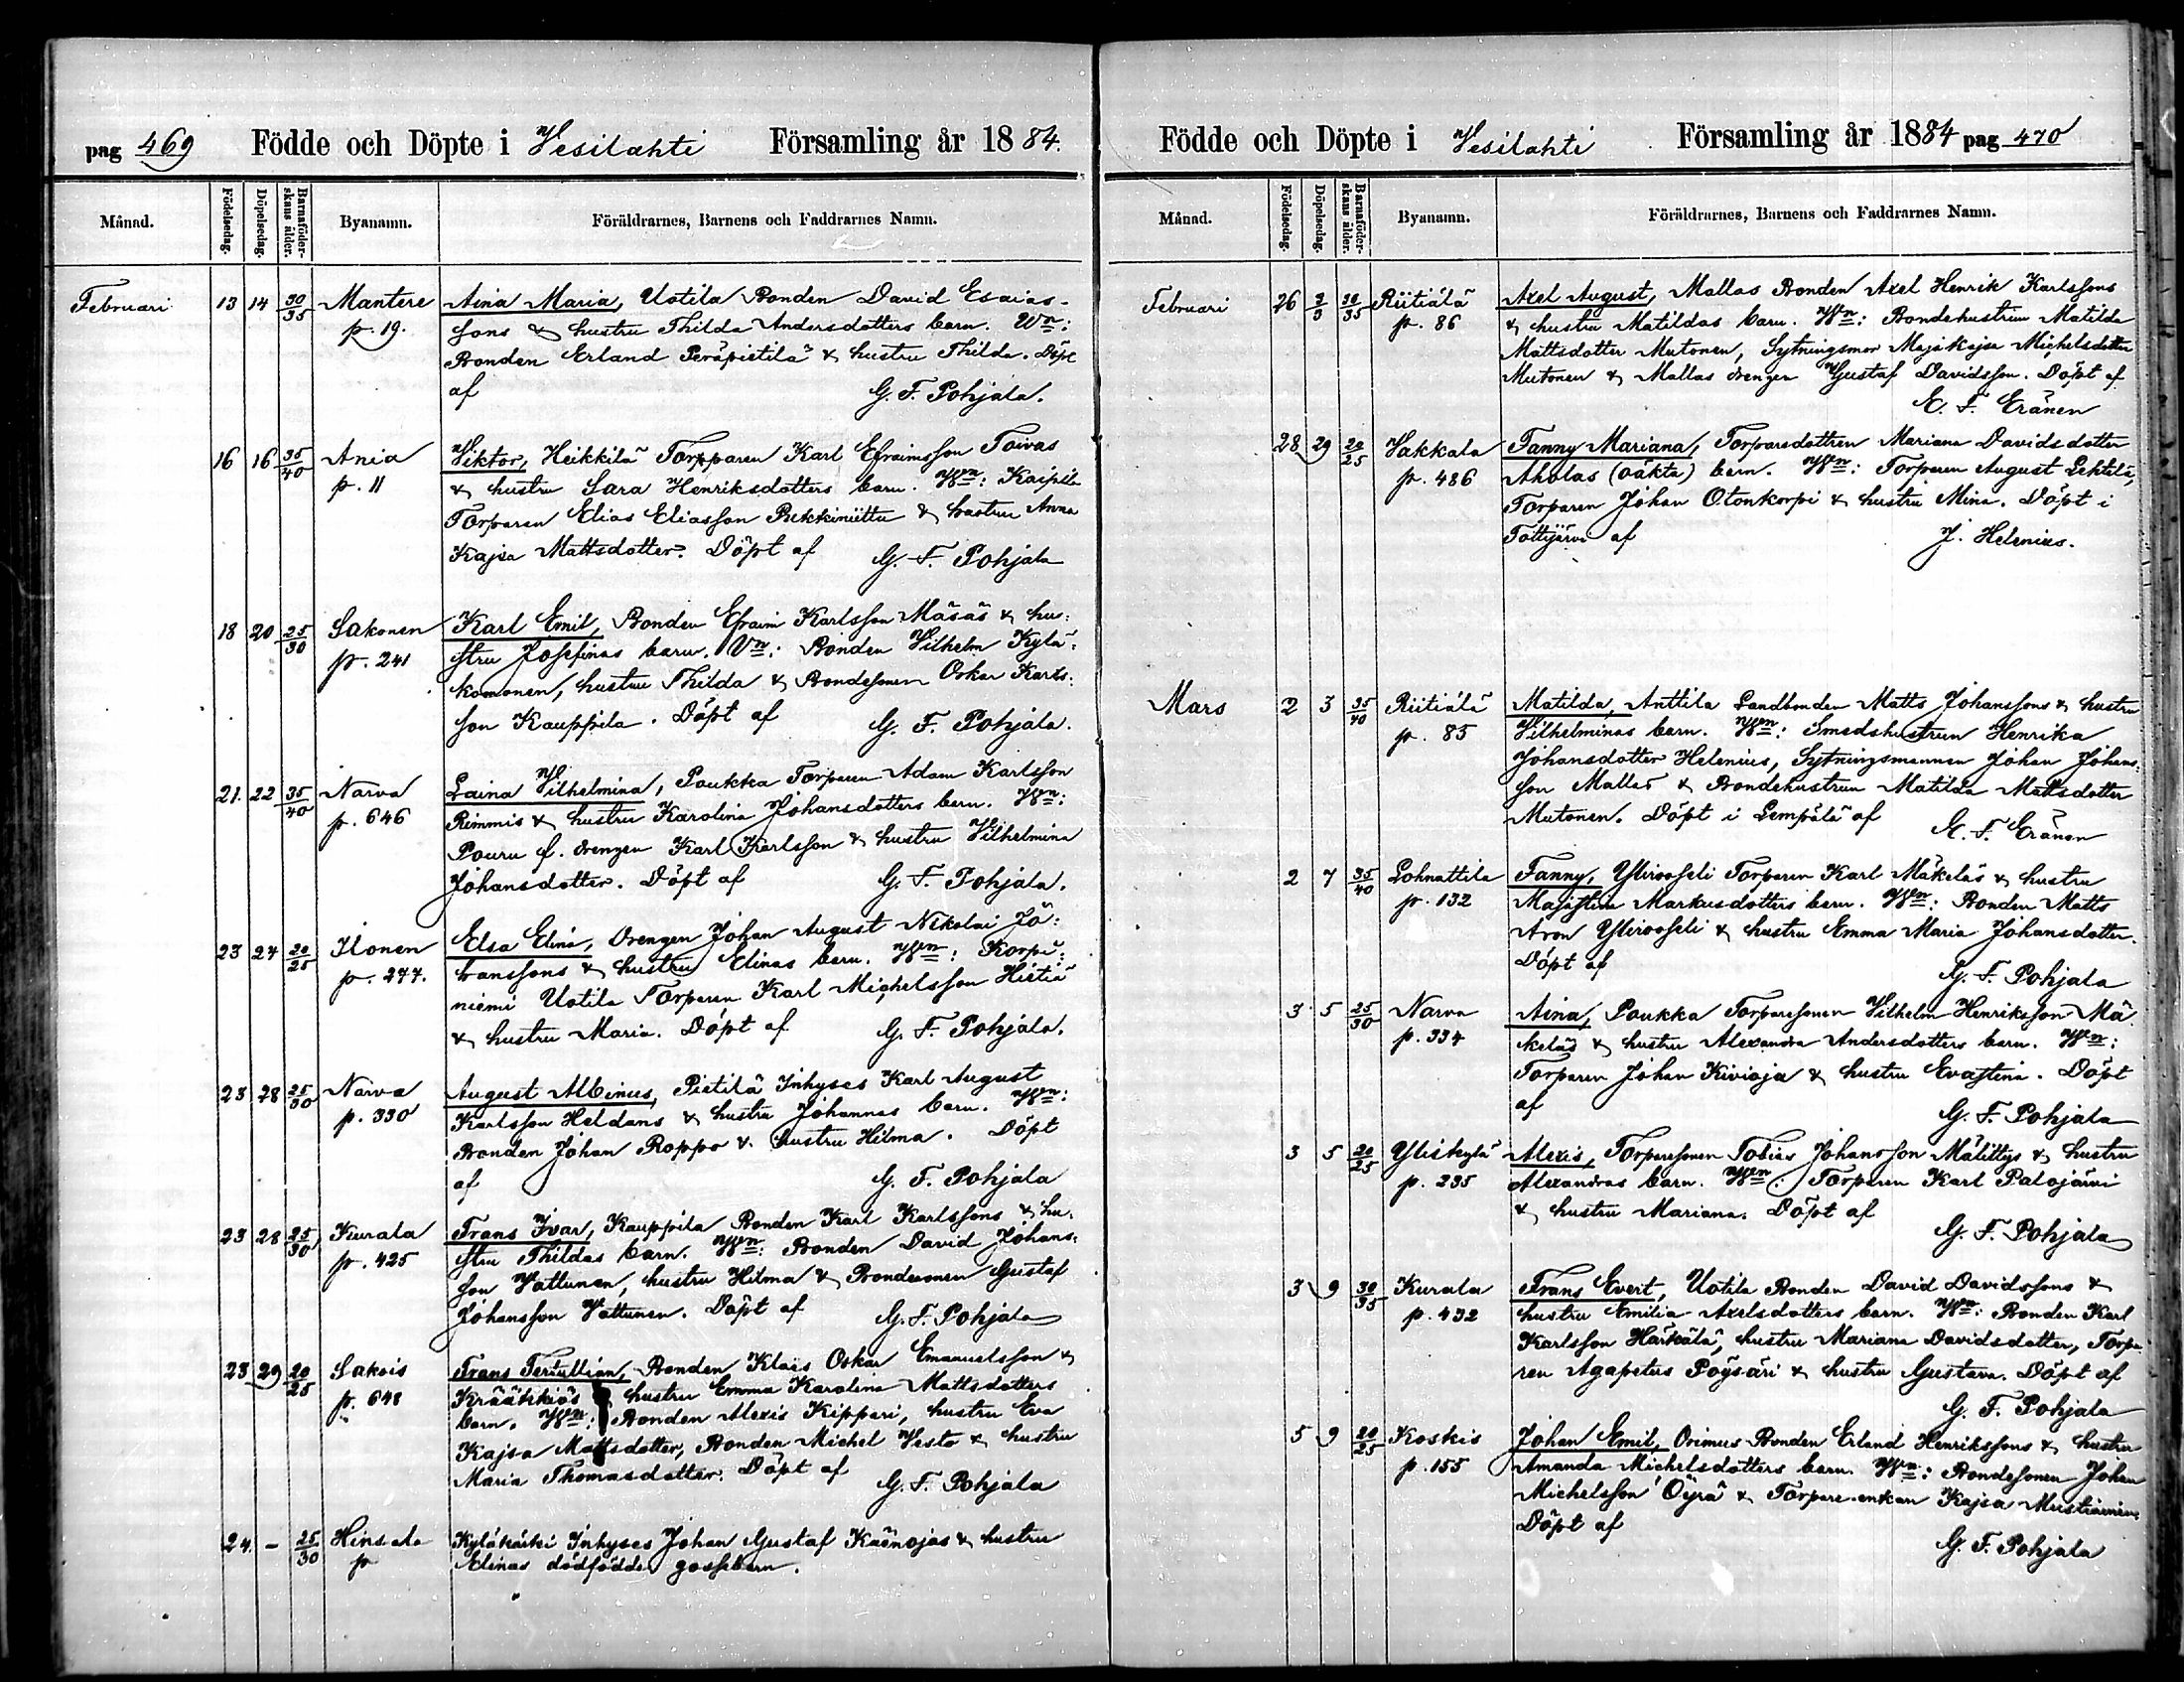 pag 469 Födde och Döpte i Vesilahti Församling år 1884.
Månad. Födelsedag. Döpelsedag. Barnaföderskans ålder. Byanamn. Föräldrarnes, Barnens och Faddrarnes Namn.
Februari 13 14 30/35 Mantere Aina Maria, Uotila Bonden David Esaias-
p. 19. sons & hustru Thilda Andersdotters barn. Wn:
Bonden Erland Peräpietilä & hustru Thilda. Döpt
af G. F. Pohjala.
16 16 35/40 Ania Viktor, Heikkilä Torpparen Karl Efraimsson Toivas
p. 11 & hustru Sara Henriksdotters barn. Wn: Kaipila
Torparen Elias Eliasson Rekkiniittu & hustru Anna
Kajsa Mattsdotter. Döpt af G. F. Pohjala
18 20 25/30 Sakonen Karl Emil, Bonden Efraim Karlsson Mäsäs & hu:
p. 241 stru Josefinas barn. Vn: Bonden Vilhelm Kylä:
komonen, hustru Thilda & Bondesonen Oskar Karls:
son Kauppila. Döpt af G. F. Pohjala.
21. 22 35/40 Narva Laina Vilhelmina, Poukka Torparen Adam Karlsson
p. 646 Rimmis & hustru Karolina Johansdotters barn. Wn:
Pouru f. drengen Karl Karlsson & hustru Vilhelmina
Johansdotter. Döpt af G. F. Pohjala.
23 24 20/25 Ilonen Elsa Elina, Drengen Johan August Nikolai Jo:
p. 277. hanssons & hustru Elinas barn. Wn: Korpi:
niemi Uotila Torparen Karl Michelsson Hietiä
& hustru Maria. Döpt af G. F. Pohjala.
23 28 25/30 Narva August Albinus, Pietilä Inhyses Karl August
p. 330 Karlsson Heldans & hustru Johannas barn. Wn:
Bonden Johan Roppo & hustru Hilma. Döpt
af G. F. Pohjala
23 28 25/30 Kurala Frans Ivar, Kauppila Bonden Karl Karlssons & hu:
p. 425 stru Thildas barn. Wn: Bonden David Johans:
son Vattunen, hustru Hilma & Bondesonen Gustaf
Johansson Vattunen. Döpt af G. F. Pohjala
23 29 20/25 Sakois Frans Tertullian, Bonden Klais Oskar Emanuelsson
p. 648 Krääkkiös & hustru Emma Karolina Mattsdotters
barn. Wn: Bonden Alexis Kippari, hustru Eva
Kajsa Mattsdotter, Bonden Michel Vesto & hustru
Maria Thomasdotter. Döpt af G. F. Pohjala
24. - 25/30 Hinsala Kyläkäiki Inhyses Johan Gustaf Kaenojas & hustru
p Elinas dödfödde gossebarn.
Födde och Döpte i Vesilahti Församling år 1884 pag 470
Månad. Födelsedag. Döpelsedag. Barnaföderskans ålder. Byanamn. Föräldrarnes, Barnens och Faddrarnes Namn.
Februari 26 30/35 Riitiälä Axel August, Mallas Bonden Axel Henrik Karlssons
p. 86 & hustru Matildas barn. Wn: Bondehustrun Matilda
Mattsdotter Mutonen, Sytningsmor Majakajsa Michelsdotter
Mutonen & Mallas drengen Gustaf Davidsson. Döpt af
E. F. Eränen
28 29 20/25 Sakkala Fanny Mariana, Torparedottren Mariana Davidsdotter
p. 486 Aholas (oäkta) barn. Wn: Torparen August Lehtilä,
Torparen Johan Otonkorpi & hustru Mina. Döpt i
Tottijärvi af J. Helenius.
Mars 2 3 35/40 Riitiälä Matilda, Anttila Landbonden Matts Johanssons & hustru
p. 85 Vilhelminas barn. Wn: Smedshustrun Henrika
Johansdotter Helenius, Sytningsmannen Johan Johans:
son Mallas & Bondehustrun Matilda Mattsdotter
Mutonen. Döpt i Lempälä af E. F. Eränen
2 7 35/40 Lohnattila Fanny, Yliroosteli Torparen Karl Mäkeläs & hustru
p. 132 Majastina Markusdotters barn. Wn: Bonden Matts
Aron & hustru Emma Maria Johansdotter.
Döpt af G. F. Pohjala
3 5 25/30 Narva Aina, Poukka Torparesonen Vilhelm Henriksson Mä
p. 334 keläs & hustru Alexandra Andersdotters barn. Wn:
Torparen Johan Kivioja & hustru Evastina. Döpt
af G. F. Pohjala
3 5 20/25 Yliskylä Alexis, Torparesonen Tobias Johansson Mälittys & hustru
p. 235 Alexandras barn. Wn: Torparen Karl Palojärvi
& hustru Mariana. Döpt af
G. F. Pohjala
3 9 30/35 Kurala Frans Evert, Uotila Bonden David Davidssons &
p. 432 hustru Emilia Axelsdotters barn. Wn: Bonden Karl
Karlsson Härkälä, hustru Mariana Davidsdotter, Torpa
ren Agapetus Pöysäri & hustru Gustava. Döpt af
G. F. Pohjala
5 9 20/25 Koskis Johan Emil, Orimus Bonden Erland Henrikssons & hustru
p. 155 Amanda Michelsdotters barn. Wn: Bondesonen Johan
Michelsson Öyrä & Torpare-enkan Kajsa
Döpt af
G. F. Pohjala